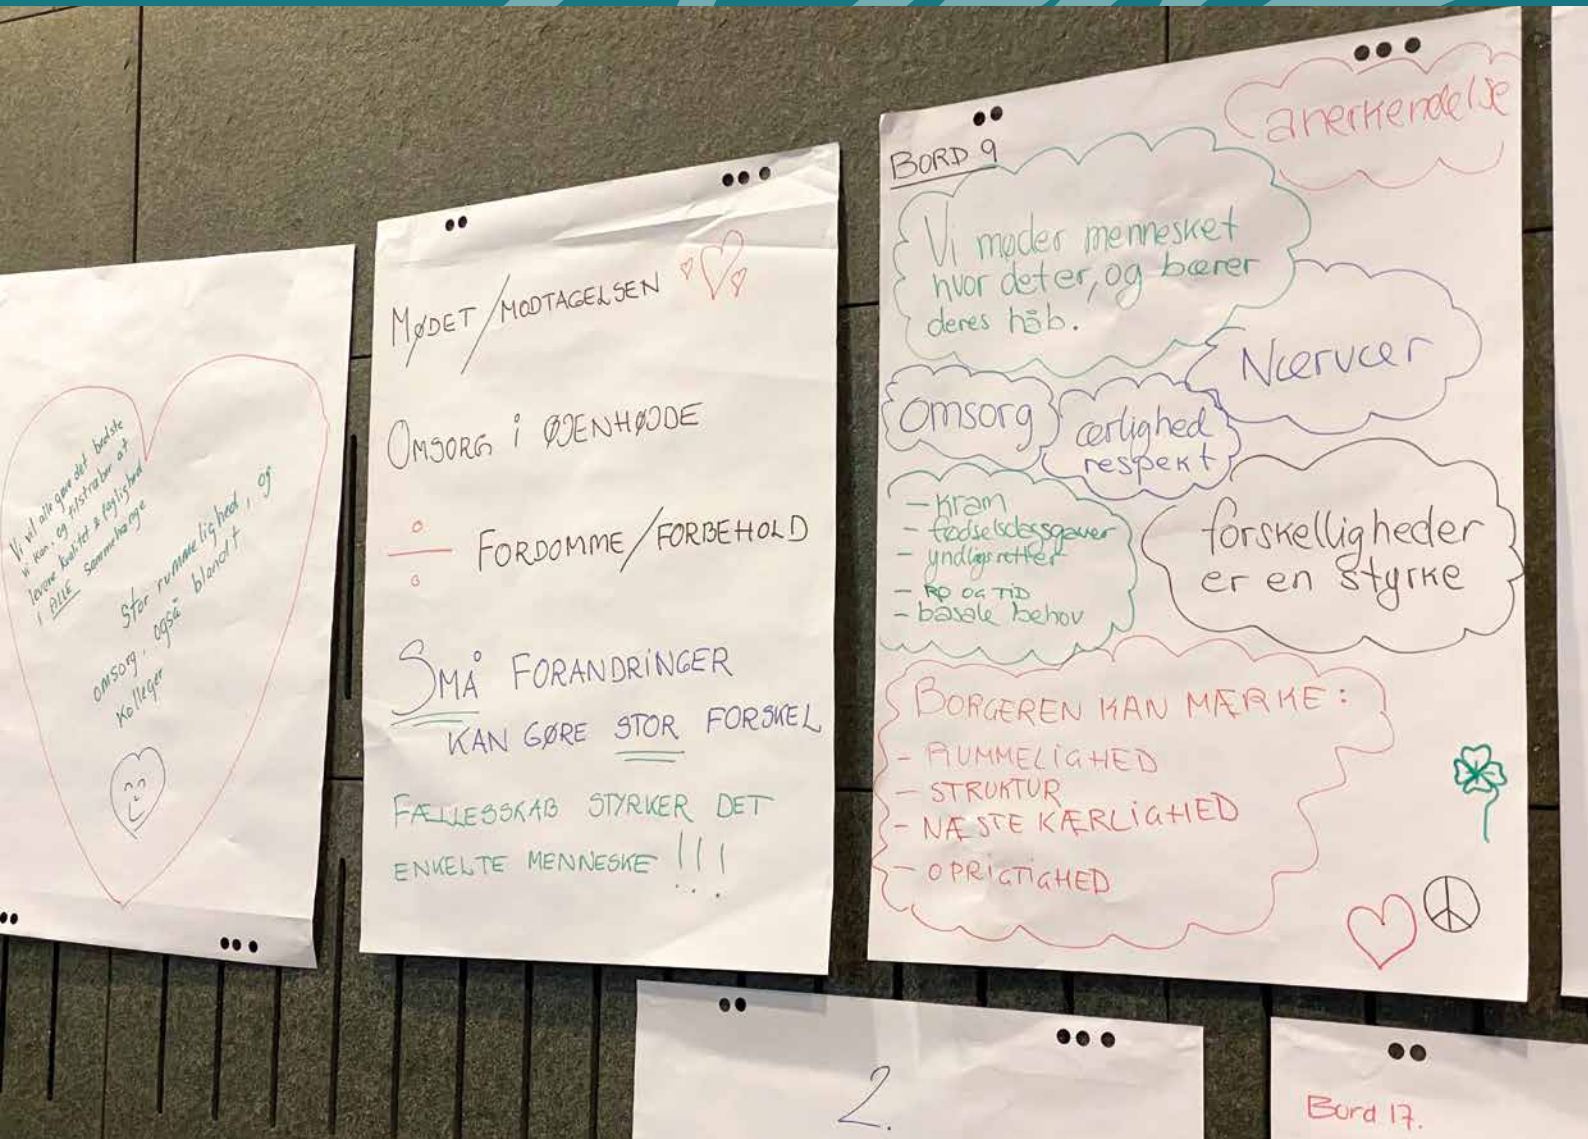 Vi vil alle gøre det bedste
vi kan, og tilstræber at
levere kvalitet & faglighed
i ALLE sammenhænge
Stor rummelighed, og
omsorg, også blandt
kolleger
MØDET/MODTAGELSEN
OMSORG i ØJENHØJDE
÷ FORDOMME/FORBEHOLD
SMÅ FORANDRINGER
KAN GØRE STOR FORSKEL
FÆLLESSKAB STYRKER DET
ENKELTE MENNESKE !!!
BORD 9
anerkendelse
Vi møder mennesket
hvor det er, og bærer
deres håb.
Nærvær
Omsorg
ærlighed
respekt
- Kram
- fødselsdagsgaver
- yndligsretter
- RO OG TID
- basale behov
forskelligheder
er en styrke
BORGEREN KAN MÆRKE:
- RUMMELIGHED
- STRUKTUR
- NÆSTE KÆRLIGHED
- OPRIGTIGHED
2.
Bord 17.